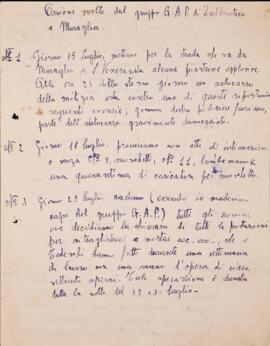 Azioni svolte dal gruppo G.A.P. di
e Muraglia.
N° 1 Giorno 15 luglio, mettiamo per la strada che va da
Muraglia a S. Veneranda alcune piastrine esplosive.
Alle ore 23 dello stesso giorno un autocarro
della milizia urta contro una di queste riportando
seguenti avarie; gomma destra
parte dell'autocarro gravemente danneggiata.
N° 2 Giorno 18 luglio, procuriamo con atto di intimazione
o senza N° 8 moschetti, N° 11, bombe a mano e
una quarantina di caricatori per moschetto.
N° 3 Giorno 29 luglio, (essendo io medesimo
capo del gruppo G.A.P.) tutti gli uomini
ove decidiamo la chiusura di tutte le postazioni
per mitragliatrici e mortai ecc. ecc., che i
Tedeschi hanno fatto durante una settimana
di lavoro con una mano d'opera di circa
settanta operai. Tale operazione è durata
tutta la notte del 29 e 30 luglio.